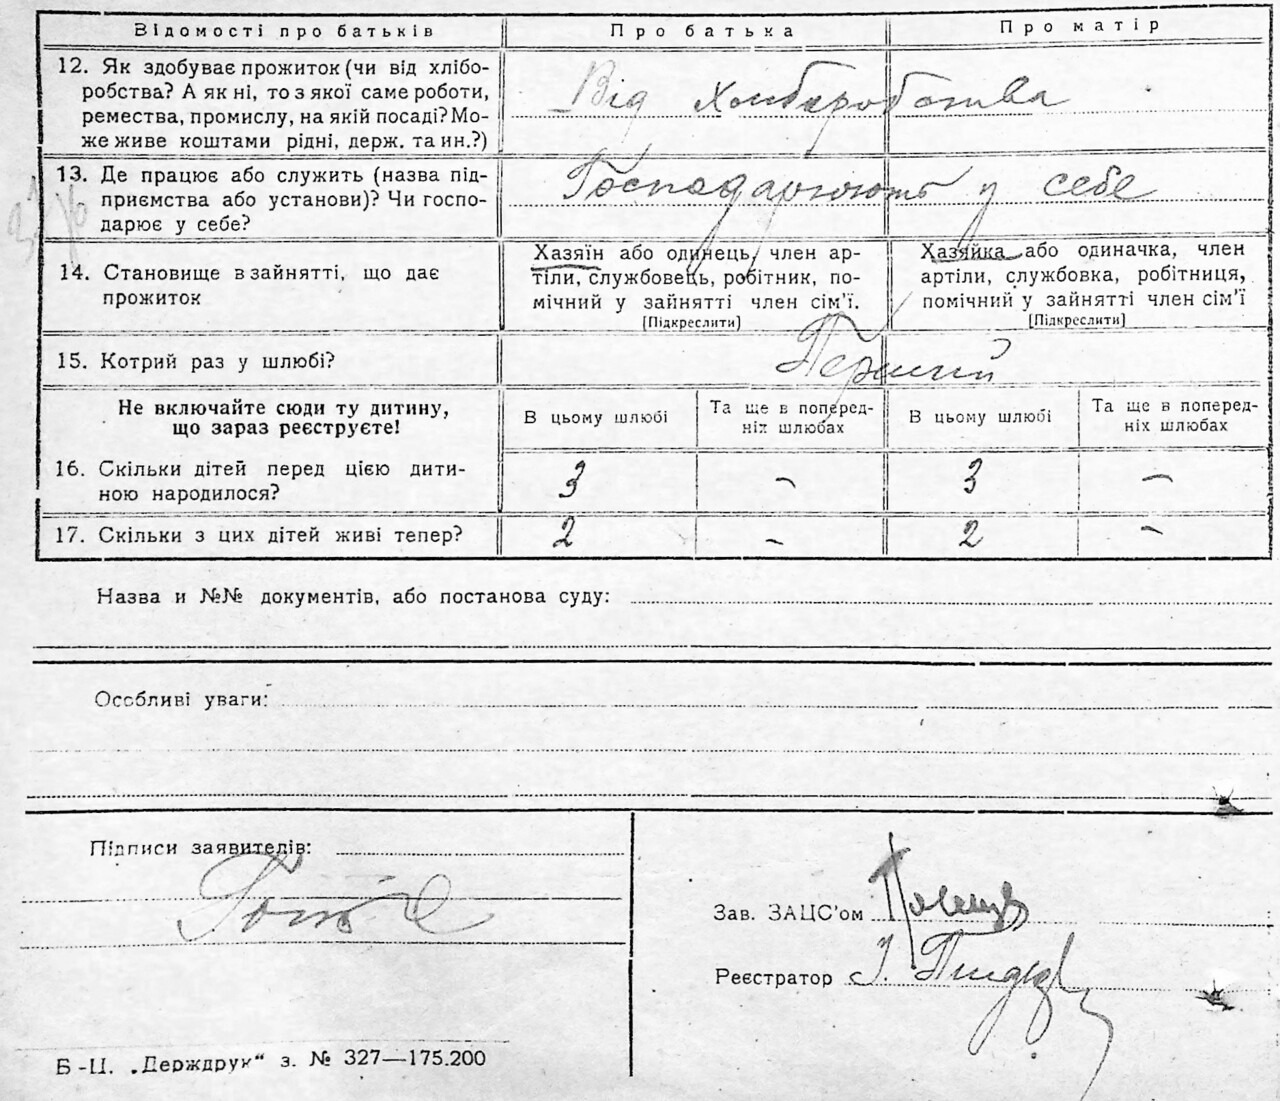 Відомості про батьків Про батька Про матір
12. Як здобуває прожиток (чи від хлібо-
робства? А як ні, то з якої саме роботи,
ремества, промислу, на якій посаді? Мо-
же живе коштами рідні, держ. та ин.?)
Від хліборобства
13. Де працює або служить (назва під-
приємства або установи)? Чи госпо-
дарює у себе?
Господарюють у себе
14. Становище в зайнятті, що дає
прожиток
Хазяїн або одинець, член ар-
тіли, службовець, робітник, по-
мічний у зайнятті член сім’ї.
[Підкреслити]
Хазяйка або одиначка, член
артіли, службовка, робітниця,
помічний у зайнятті член сім’ї
[Підкреслити]
15. Котрий раз у шлюбі?
Перший
Не включайте сюди ту дитину,
що зараз реєструєте!
В цьому шлюбі
Та ще в поперед-
ніх шлюбах
В цьому шлюбі
Та ще в поперед-
ніх шлюбах
16. Скільки дітей перед цією дити-
ною народилося?
3 - 3 -
17. Скільки з цих дітей живі тепер? 2 - 2 -
Назва и №№ документів, або постанова суду:
Особливі уваги:
Підписи заявителів:
Зав. ЗАЦС’ом
Реєстратор І.
Б-Ц. „Держдрук“ з. № 327—175.200